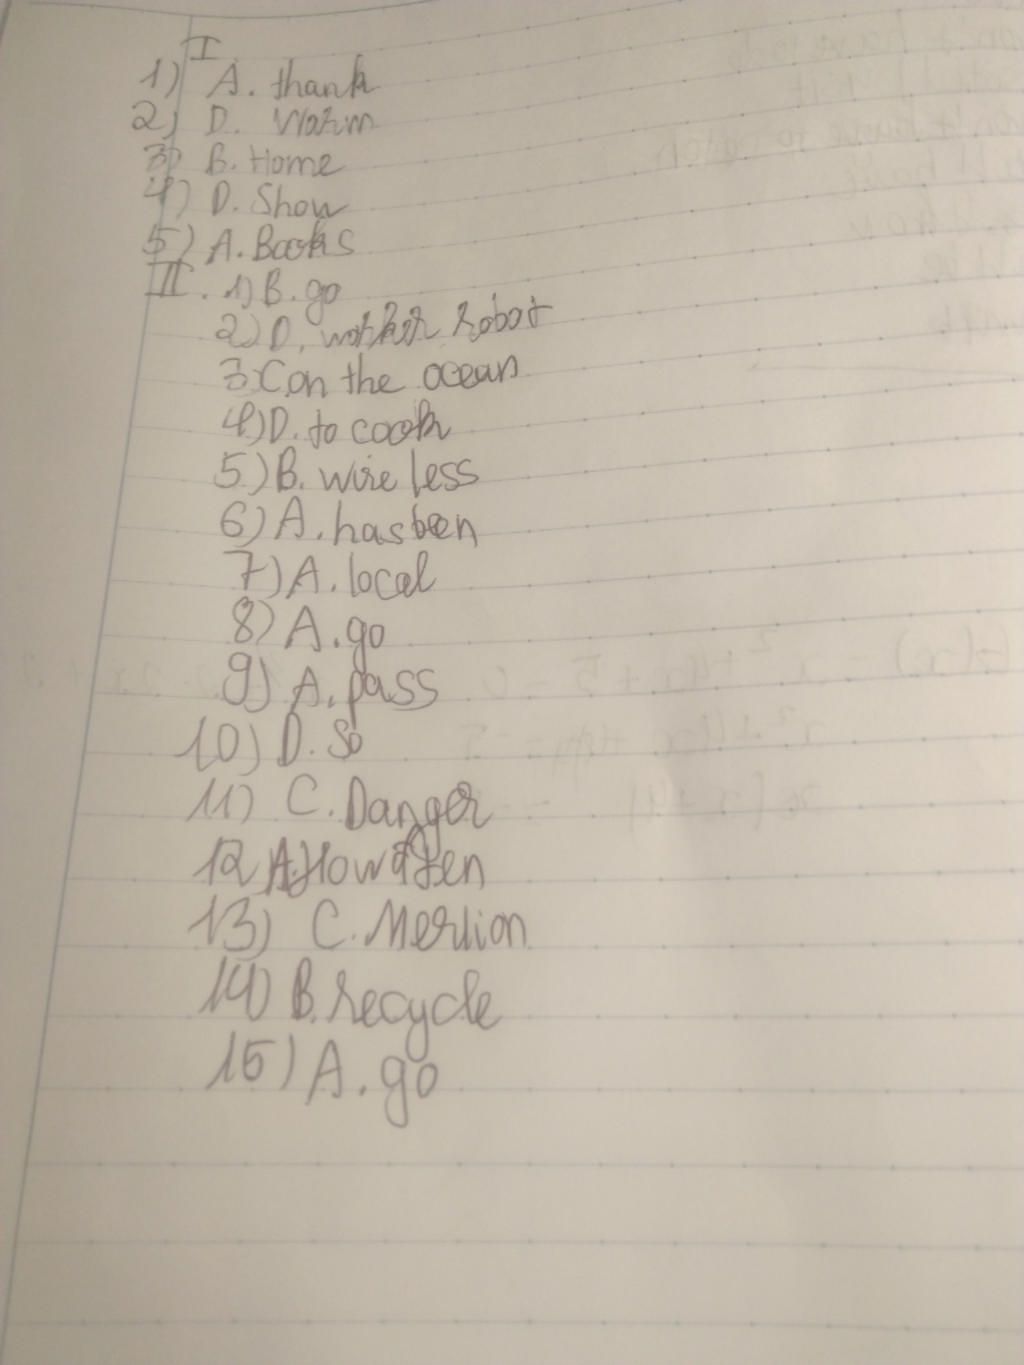 I
1) A. thank
2) D. Warm
3) B. Home
4) D. Show
5) A. Books
II. 1) B. go
2) D. worker robot
3. C on the ocean
4) D. to cook
5) B. wire less
6) A. has been
7) A. local
8) A. go
9) A. pass
10) D. So
11) C. Danger
12 A. How often
13) C. Merlion
14) B. recycle
15) A. go